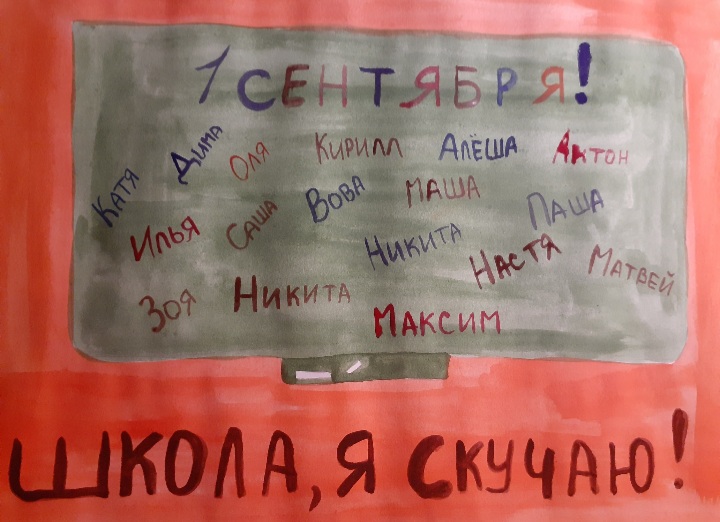 1 СЕНТЯБРЯ!
КАТЯ ДИМА ОЛЯ КИРИЛЛ АЛЁША АНТОН
ИЛЬЯ САША ВОВА МАША ПАША
ЗОЯ НИКИТА НИКИТА НАСТЯ МАТВЕЙ
МАКСИМ
ШКОЛА, Я СКУЧАЮ!